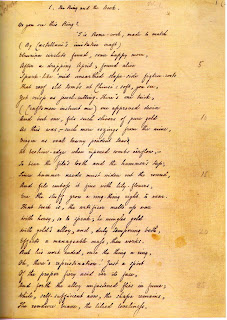 1. The Ring and the Book.
Do you see this Ring?
'Tis Rome-work, made to match
(By Castellani's imitative craft)
Etrurian circlets found, some happy morn,
After a dropping April; found alive
Spark-like 'mid unearthed slope-side figtree-roots
That roof old tombs at Chiusi: soft, you see,
Yet crisp as jewel-cutting. There's one trick,
(Craftsmen instruct me) one approved device
And but one, fits such slivers of pure gold
As this was,—such mere oozings from the mine,
Virgin as oval tawny pendent tear
At beehive-edge when ripened combs o'erflow,—
To bear the file's tooth and the hammer's tap:
Since hammer needs must widen out the round,
And file emboss it fine with lily-flowers,
Ere the stuff grow a ring-thing right to wear.
That trick is, the artificer melts up wax
With honey, so to speak; he mingles gold
With gold's alloy, and, duly tempering both,
Effects a manageable mass, then works.
But his work ended, once the thing a ring,
Oh, there's repristination! Just a spirt
O' the proper fiery acid o'er its face,
And forth the alloy unfastened flies in fume;
While, self-sufficient now, the shape remains,
The rondure brave, the lilied loveliness,
5
10
15
20
25